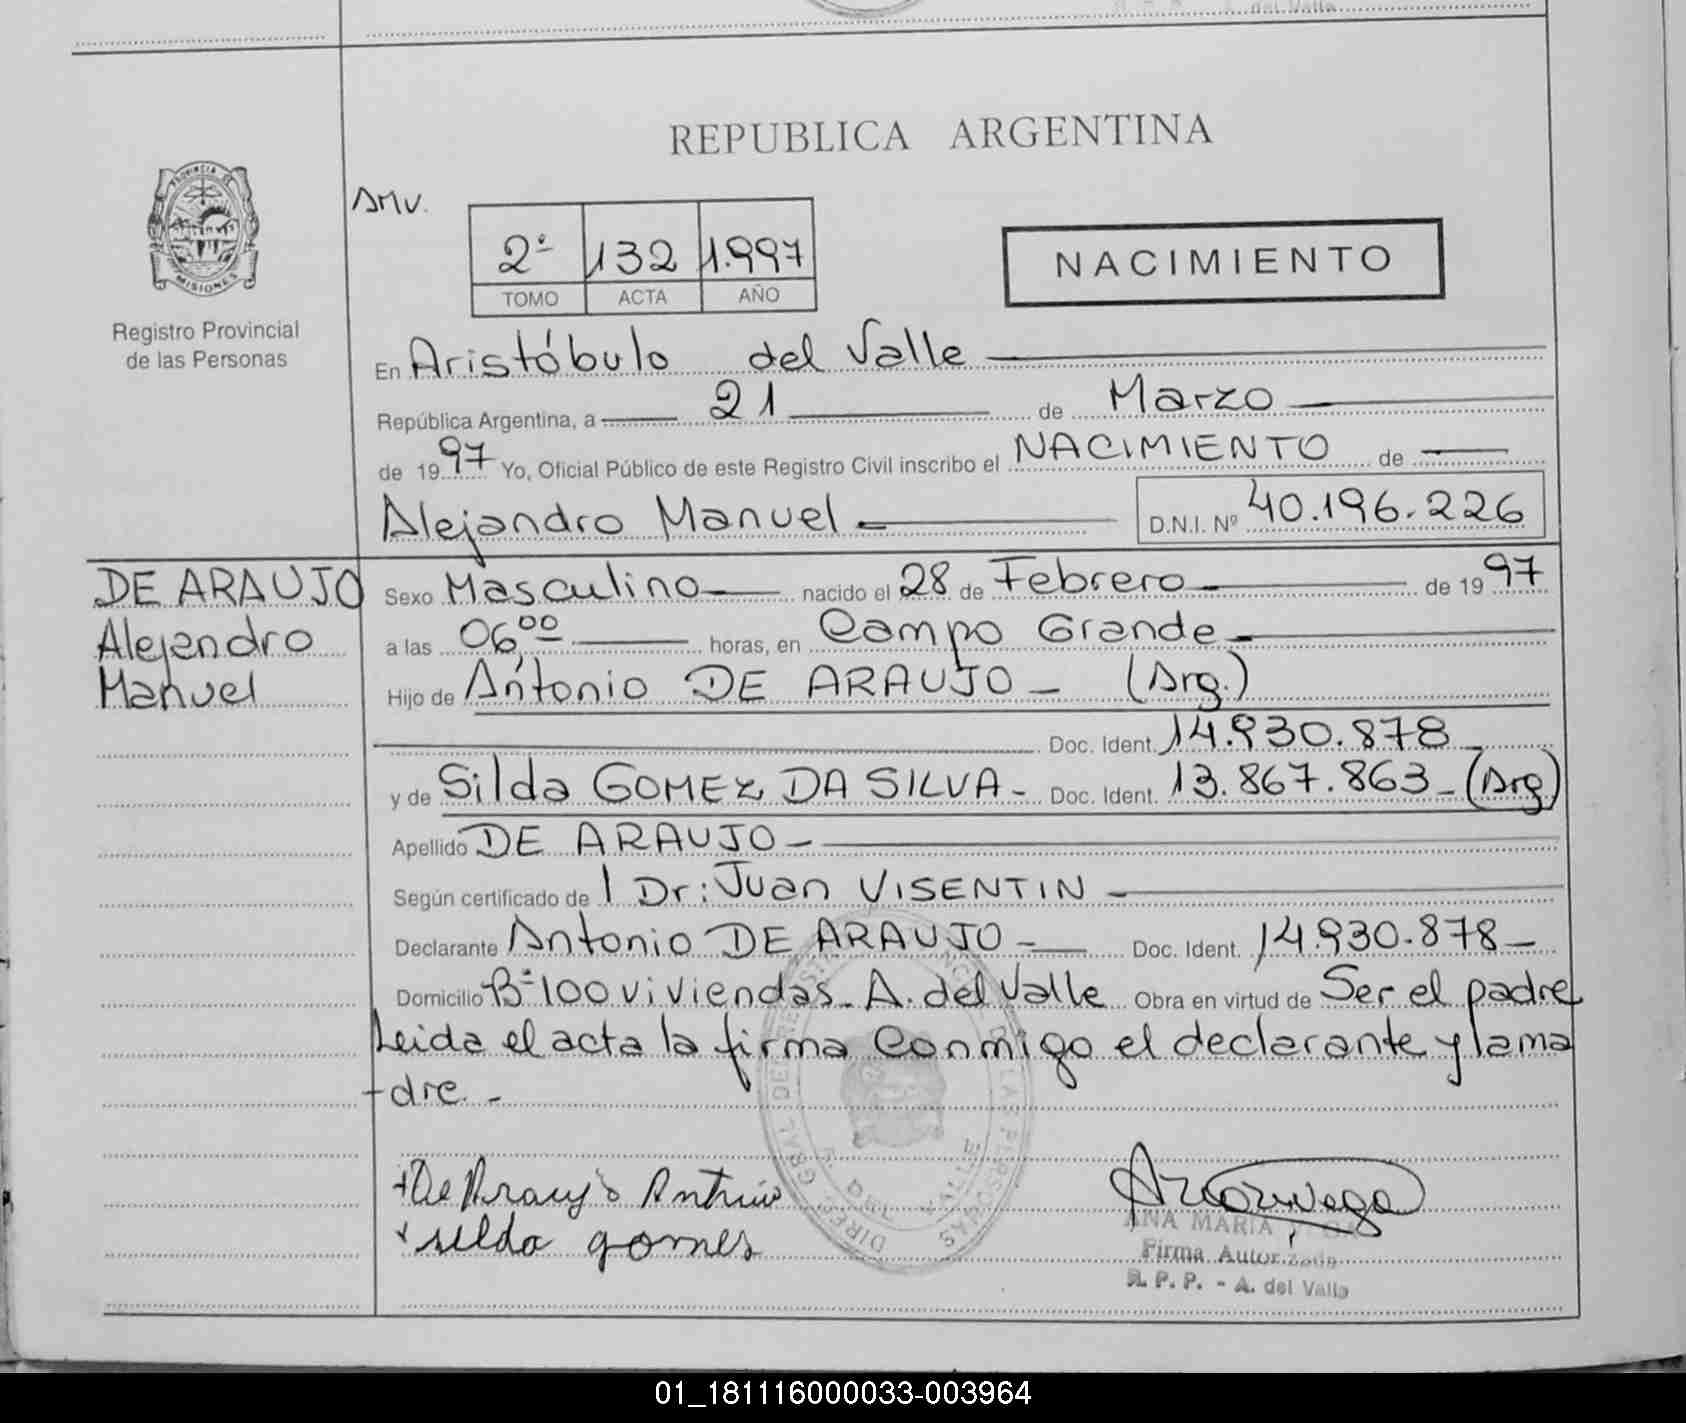 A. del Valle
REPUBLICA ARGENTINA
PROVINCIA DE
MISIONES
Registro Provincial
de las Personas
AMV.
2º 132 1.997
TOMO ACTA AÑO
NACIMIENTO
En Aristóbulo del Valle
República Argentina, a 21 de Marzo
de 1997 Yo, Oficial Público de este Registro Civil inscribo el NACIMIENTO de
Alejandro Manuel D.N.I. Nº 40.196.226
DE ARAUJO
Alejandro
Manuel
Sexo Masculino nacido el 28 de Febrero de 1997
a las 06,00 horas, en Campo Grande
Hijo de Antonio DE ARAUJO - (Arg.)
Doc. Ident. 14.930.878
y de Silda GOMEZ DA SILVA - Doc. Ident. 13.867.863 - (Arg)
Apellido DE ARAUJO
Según certificado de l Dr: Juan VISENTIN
Declarante Antonio DE ARAUJO - Doc. Ident. 14.930.878
Domicilio Bº 100 viviendas - A. del Valle Obra en virtud de Ser el padre
Leida el acta la firma conmigo el declarante y la ma
-dre. -
+De Araujo Antonio
+silda gomes
ANA MARIA
Firma Autorizada
R. P. P. - A. del Valle
01_181116000033-003964